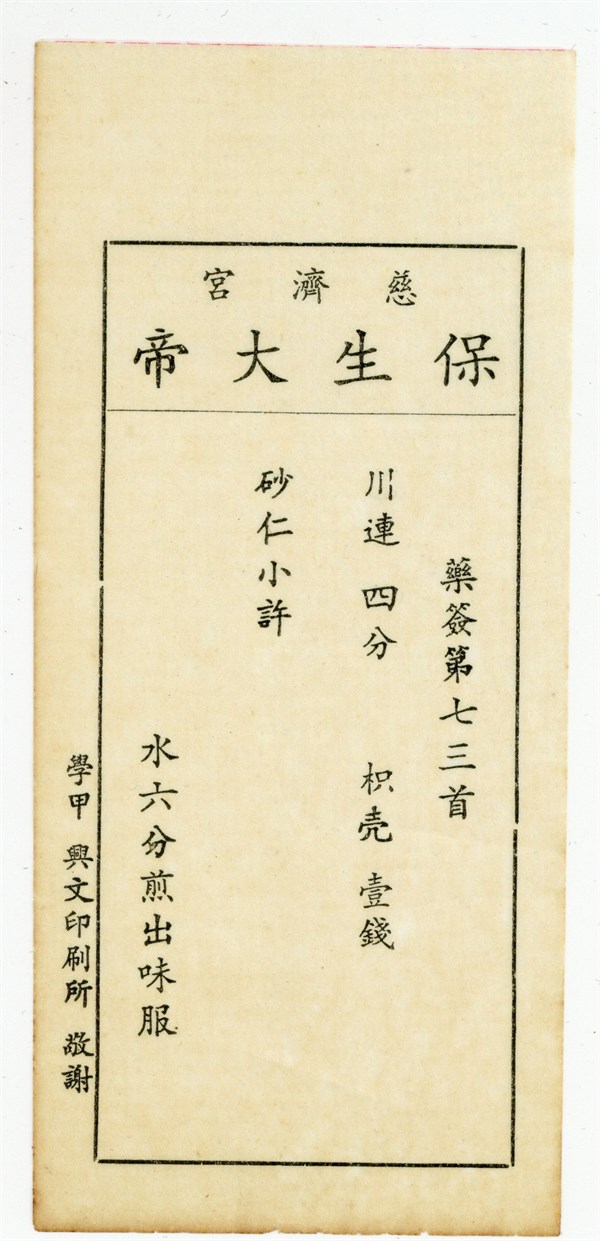 慈濟宮
保生大帝
藥簽第七三首
川連 四分 枳壳 壹錢
砂仁小許
水六分煎出味服
學甲 興文印刷所 敬謝